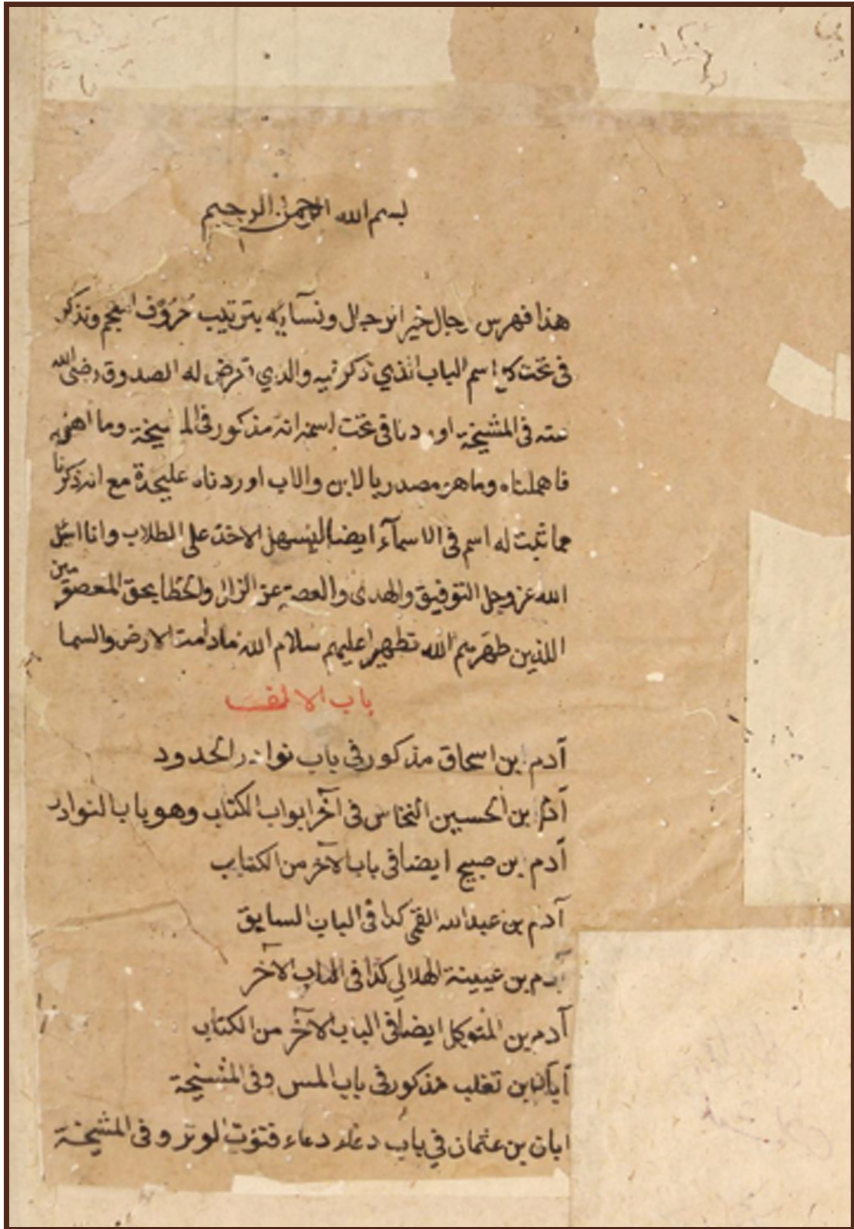 بسم الله الرحمن الرحيم
هذا فهرس رجال خير الرجال ونسآئه بترتيب حروف المعجم ونذكر
فى تحت كل اسم الباب الذي ذكر فيه والذي تعرض له الصدوق رضى الله
عنه فى المشيخة اوردنا فى تحت اسمه انه مذكور فى المشيخة وما اهمله
فاهملناه وما هو مصدر بالابن والاب اوردناه عليحدة مع انه ذكرنا
مما ثبت له اسم فى الاسمآء ايضا ليسهل الاخذ على الطلاب وانا اسئل
الله عز وجل التوفيق والهدى والعصمة عن الزلل والخطا بحق المعصومين
اللذين طهرهم الله تطهيرا عليهم سلام الله مادامت الارض والسما
باب الالف
آدم بن اسحاق مذكور فى باب نوادر الحدود
آدم بن الحسين النخاس فى آخر ابواب الكتاب وهو باب النوادر
آدم بن صبيح ايضا فى باب الآخر من الكتاب
آدم بن عبد الله القمى كذا فى الباب السابق
آدم بن عيينة الهلالي كذا فى الباب الآخر
آدم بن المتوكل ايضا فى الباب الآخر من الكتاب
ابان بن تغلب مذكور فى باب المس وفى المشيخة
ابان بن عثمان في باب دعاء دعاء قنوت الوتر وفى المشيخة